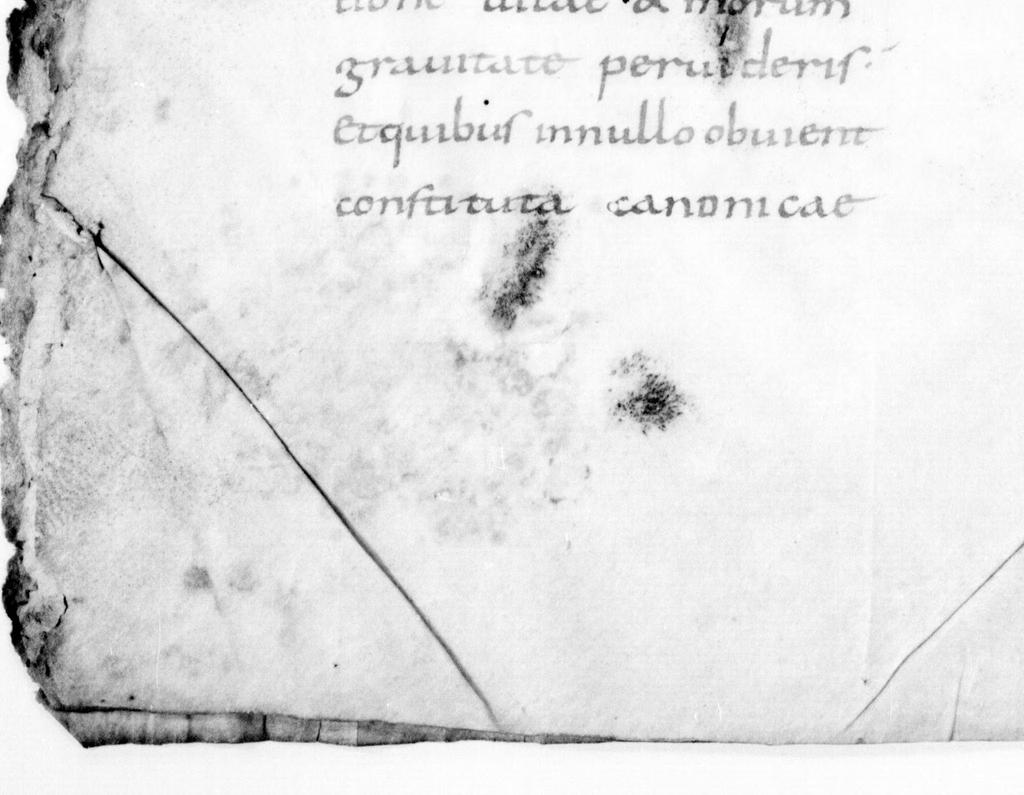 tione uitae & morum
grauitate peruideris.
Etquibus innullo obuient
constituta canonicae